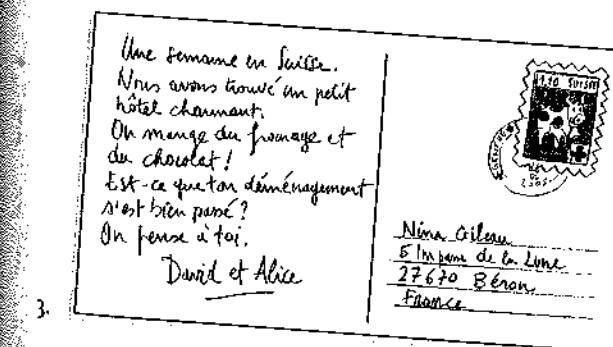 Une semaine en Suisse.
Nous avons trouvé un petit
hôtel charmant.
On mange du fromage et
du chocolat !
Est-ce que ton déménagement
s'est bien passé ?
On pense à toi.
David et Alice
1.10 SUISSE
Nina
5 Impasse de la Lune
27670 Béron
France
3.